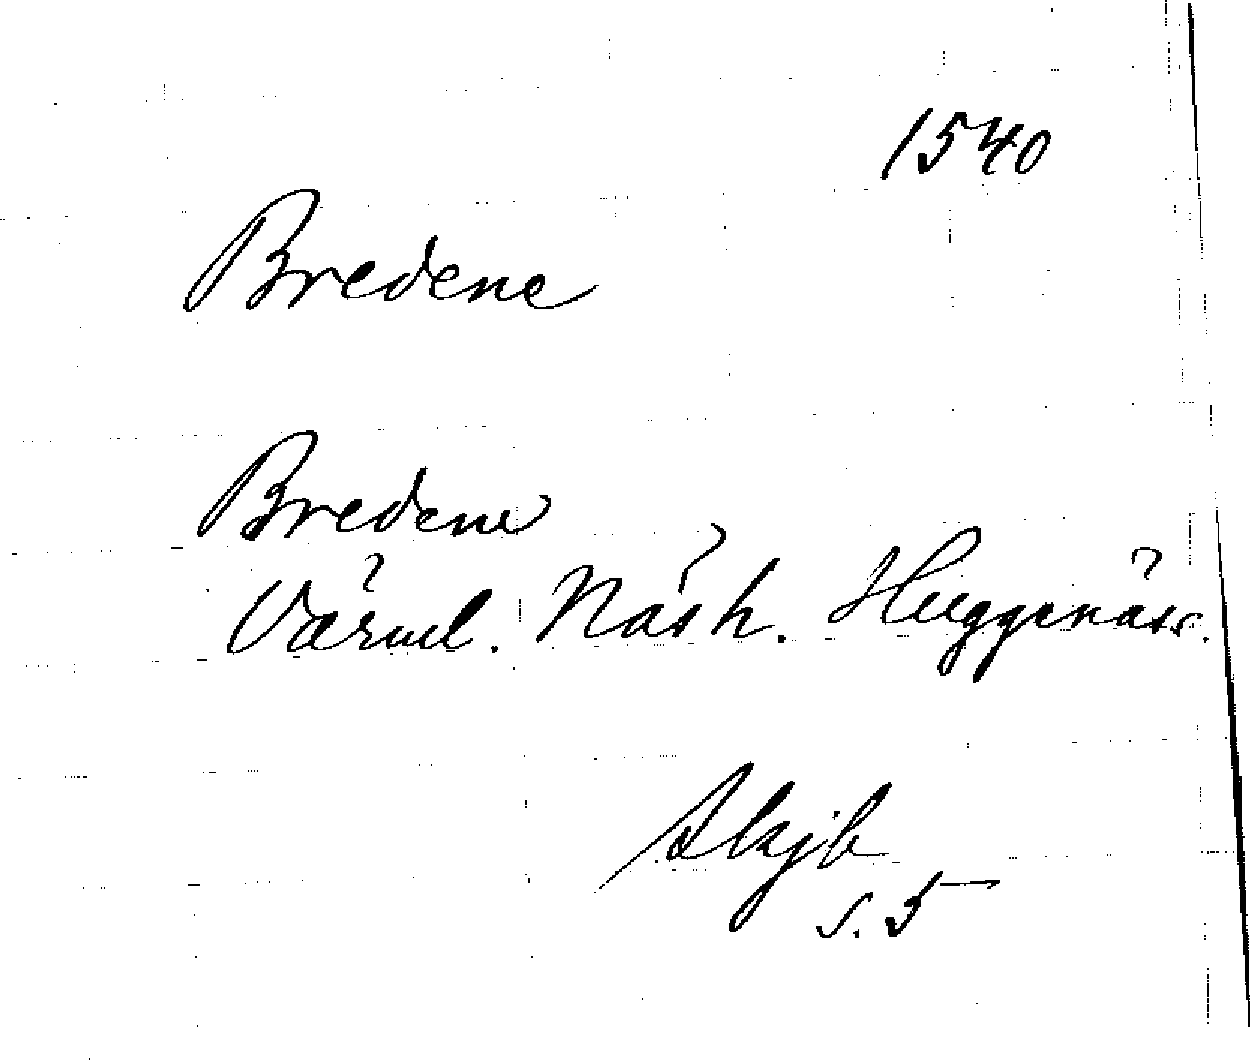 1540
Bredene
Bredene
Värml. Näs h. Huggenäs s.
Skjb
s. 5